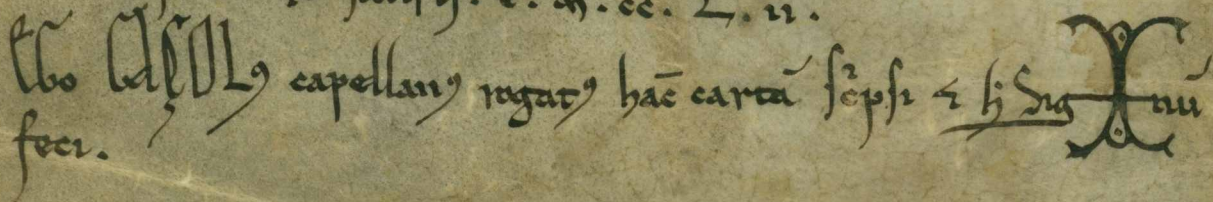 . m . cc . L . ii .
Ego CAROLꝰ capellanꝰ rogatꝰ hac̄ cartā sc̄psi ⁊ ħ sig nū
feci .